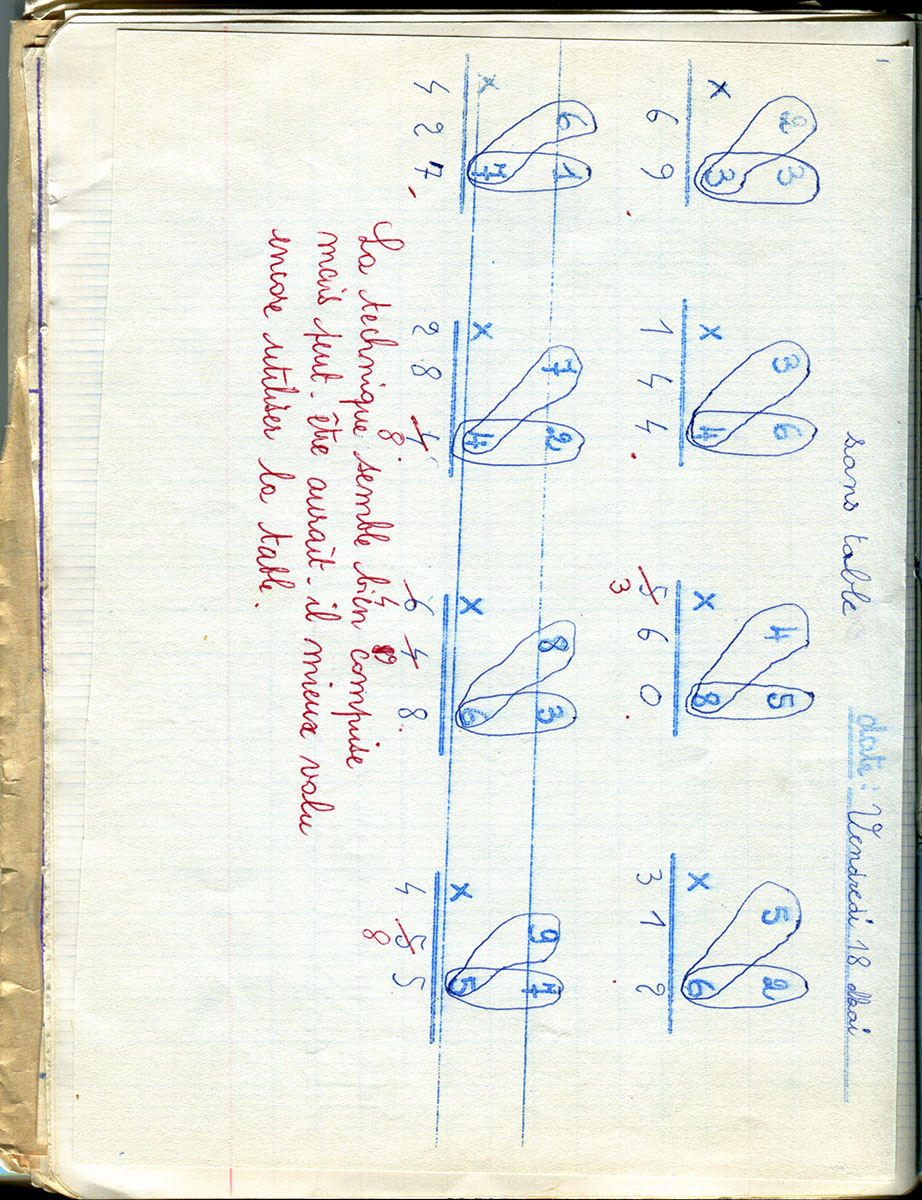 sans table date : Vendredi 18 Mai
2 3 3 6 4 5 5 2
x 3 x 4 x 8 x 6
6 9 1 4 4 5 6 0 3 1 2
3
6 1 7 2 8 3 9 7
x 7 x 4 x 6 x 5
4 2 7 2 8 4 6 4 8 4 5 5
8 4 9 8
La technique semble bien comprise
mais peut-être aurait-il mieux valu
encore utiliser la table.